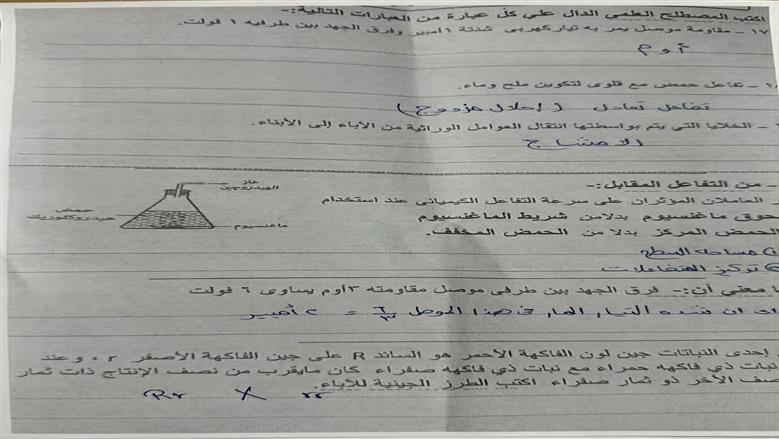 اكتب المصطلح العلمي الدال علي كل عبارة من العبارات التالية:-
١٧- مقاومة موصل يمر به تيار كهربى شدتة ١ أمبير وفرق الجهد بين طرفيه ١ فولت.
أوم
- تفاعل حمض مع قلوى لتكوين ملح وماء.
تفاعل تعادل (إحلال مزدوج)
- الخلايا التي يتم بواسطتها انتقال العوامل الوراثية من الآباء إلى الأبناء.
الامشاج
- من التفاعل المقابل:-
العاملان المؤثران على سرعة التفاعل الكيميائى عند استخدام
غاز الهيدروجين
حمض هيدروكلوريك
ماغنسيوم
حوق ماغنسيوم بدلا من شريط الماغنسيوم
الحمض المركز بدلا من الحمض المخفف.
① مساحة السطح
② تركيز المتفاعلات
ا معني أن:- فرق الجهد بين طرفى موصل مقاومته ٣ أوم يساوى ٦ فولت
ان شده التيار المار فى هذا الموصل ٦/٣ = ٢ أمبير
إحدى النباتات جين لون الفاكهة الأحمر هو السائد R على جين الفاكهة الأصفر r ، وعند
نبات ذي فاكهه حمراء مع نبات ذي فاكهه صفراء كان مايقرب من نصف الإنتاج ذات ثمار
صف الآخر ذو ثمار صفراء اكتب الطرز الجينية للآباء.
Rr X rr